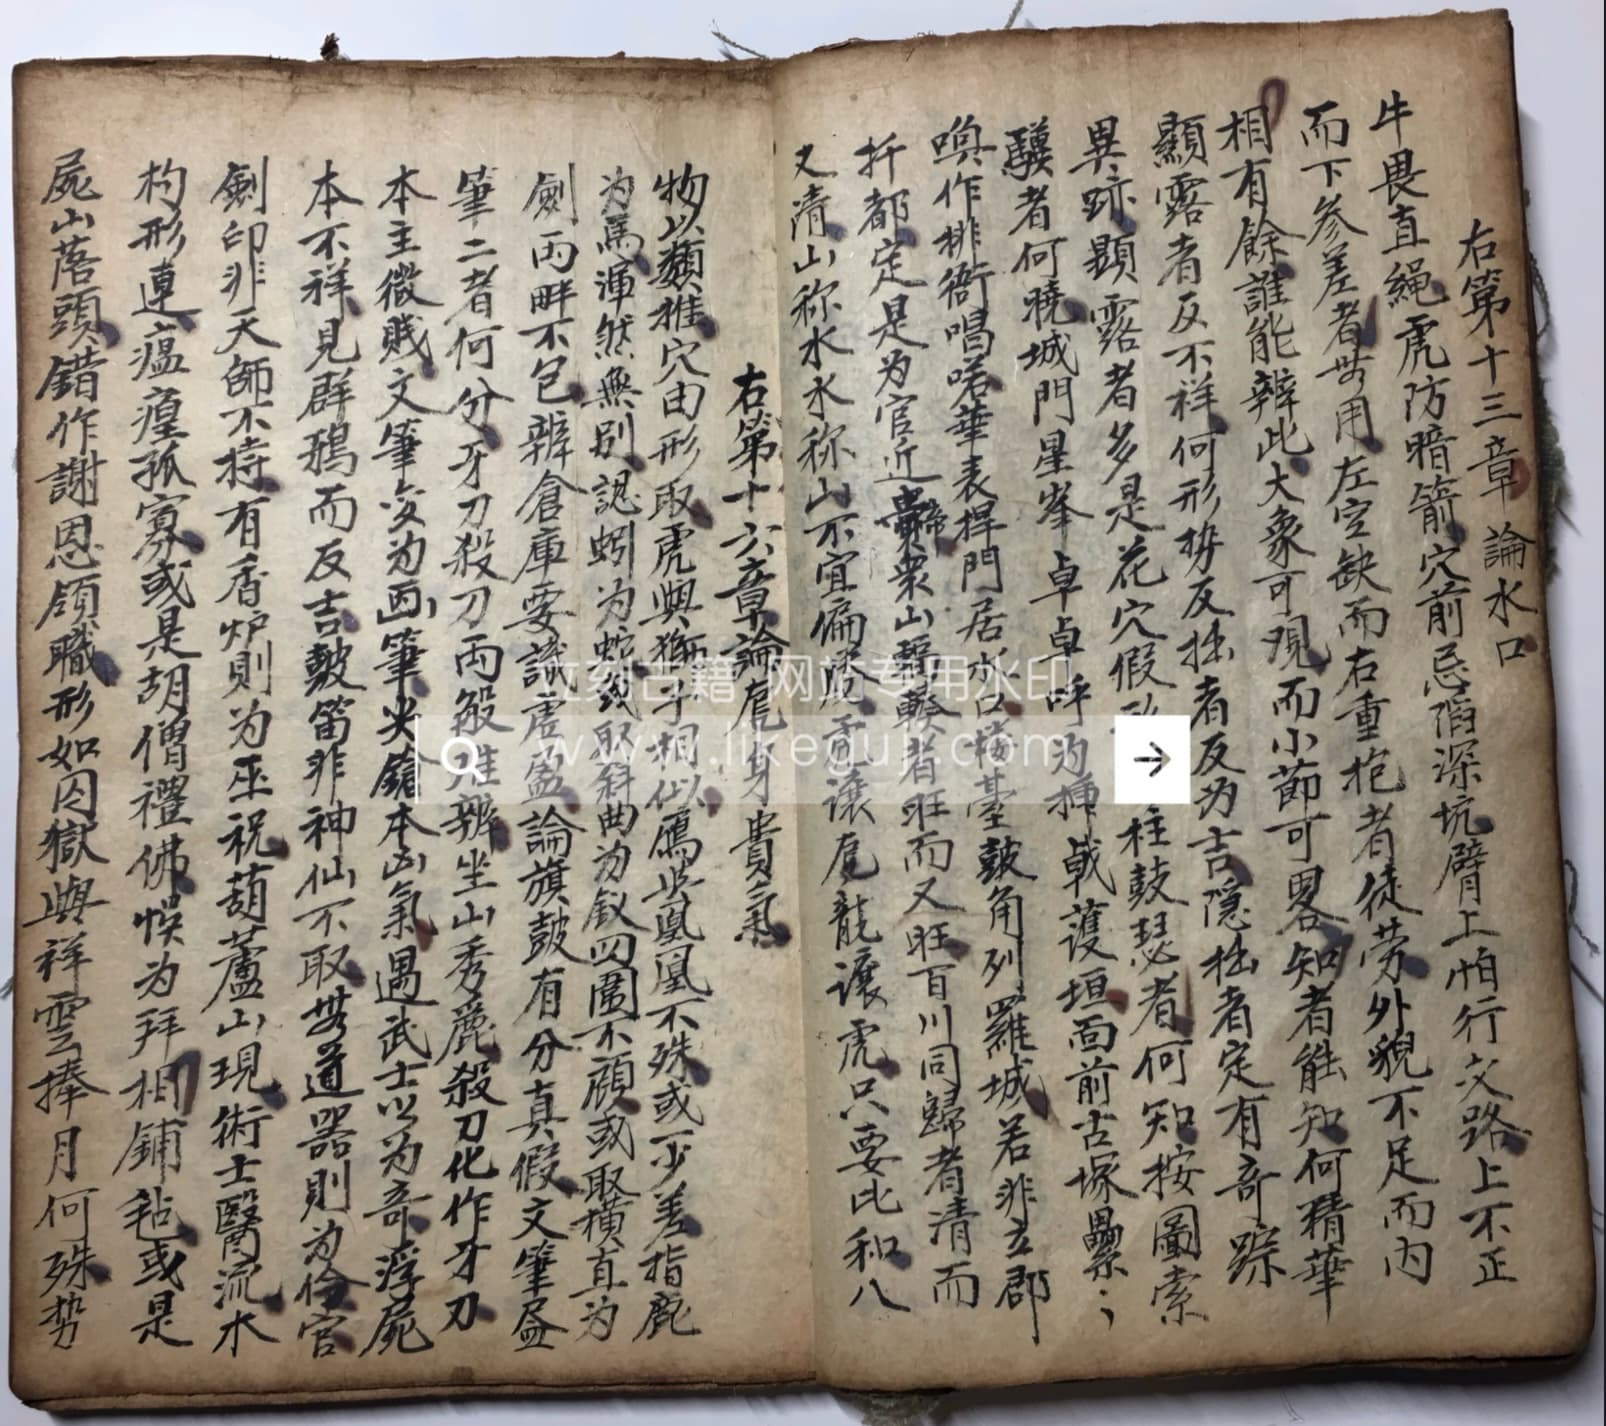 右第十三章 論水口
牛畏直繩虎防暗箭穴前忌陷深坑臂上怕行交路上不正
而下參差者毋用左空缺而右重抱者徒劳外貌不足而内
相有餘誰能辨此大象可观而小節可畧知者能知何精華
顯露者反不祥何形势反拙者反为吉隐拙者定有奇踪
異跡顕露者多是花穴假 柱鼓瑟者何知按圖索
驥者何曉城門星峯卓卓呼为挿戟護垣面前古塚纍ミ
喚作排衙唱喏華表捍門居水口楼臺鼓角列羅城若非立郡
扦都定是为官近帝 衆山 者旺而又旺百川同歸者清而
又清山称水水称山不宜偏 虎讓龍 讓虎只要比和八
右第十六章論 身貴氣
物以類推穴由形取虎與獅子相似鴈 鳳凰不殊或一少差指鹿
为馬渾然無别認蚓为蛇 斜曲为釵四圍不顧或取横直为
劍两畔不包辨倉庫要識虚盈論旗鼓有分真假文筆
筆二者何分牙刀殺刀两般 辨坐山秀麗殺刀化作牙刀
本主微贱文筆变为画筆尖鎗本凶氣遇武士以为奇浮屍
本不祥見群鴉而反吉鼓笛非神仙不取 道器則为伶官
劍印非天師不持有香炉則为巫祝葫蘆山現術士醫流水
杓形連瘟㾮孤寡或是胡僧禮佛悮为拜相鋪毡或是
屍山落頭錯作謝恩領職形如囚獄與祥雲捧月何殊势
立刻古籍 网站专用水印
www.likeguji.com